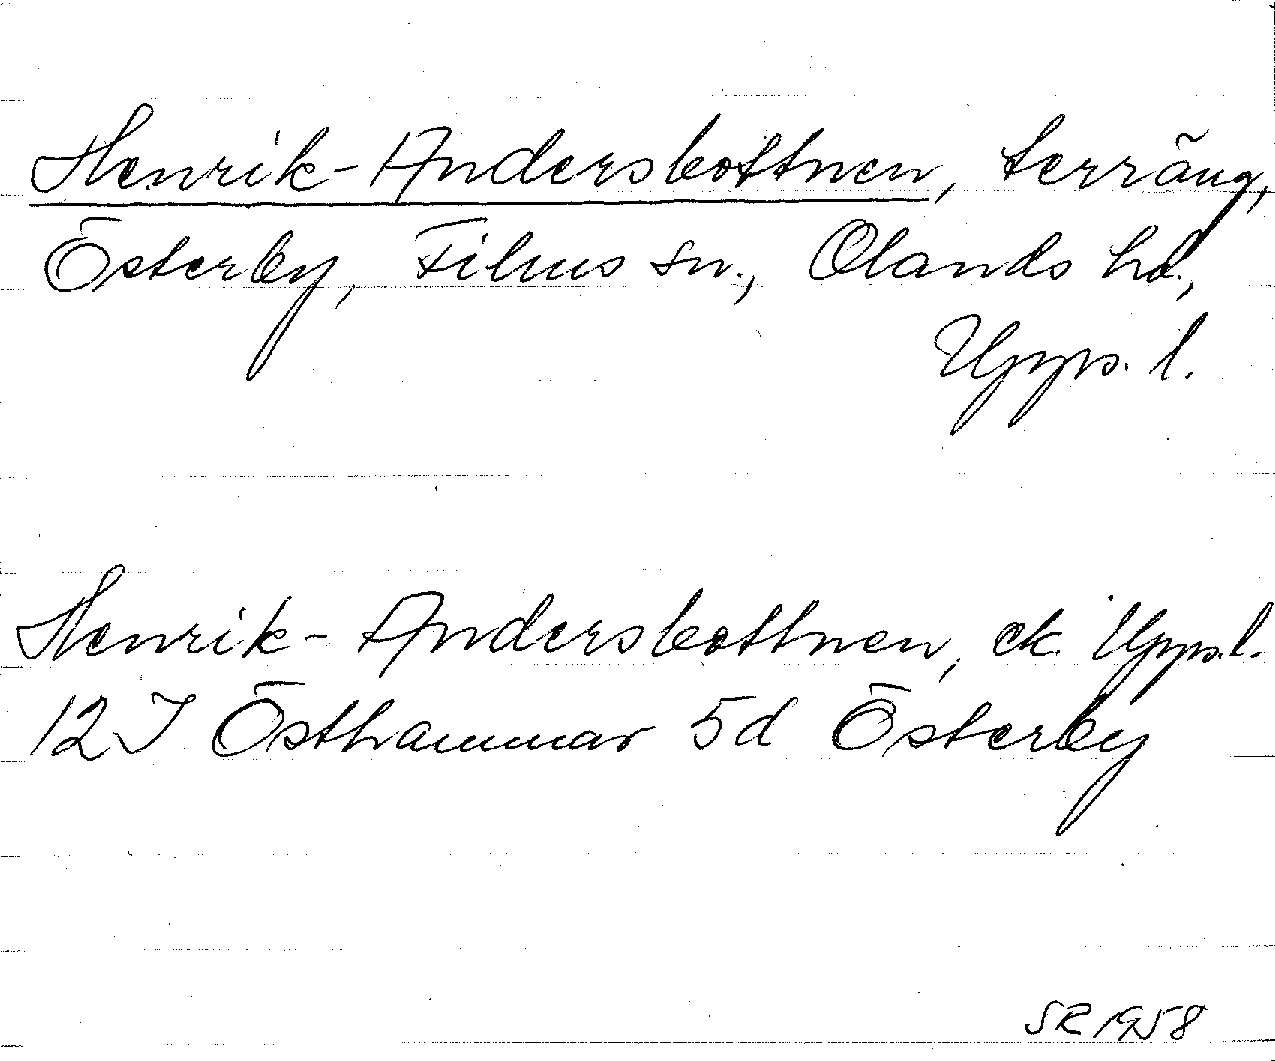 Henrik-Andersbottnen, terräng,
Österby, Films sn., Olands hd.,
Upps. l.
Henrik-Andersbottnen, ek. Upps.l.
12I Östhammar 5d Österby
SR 1958